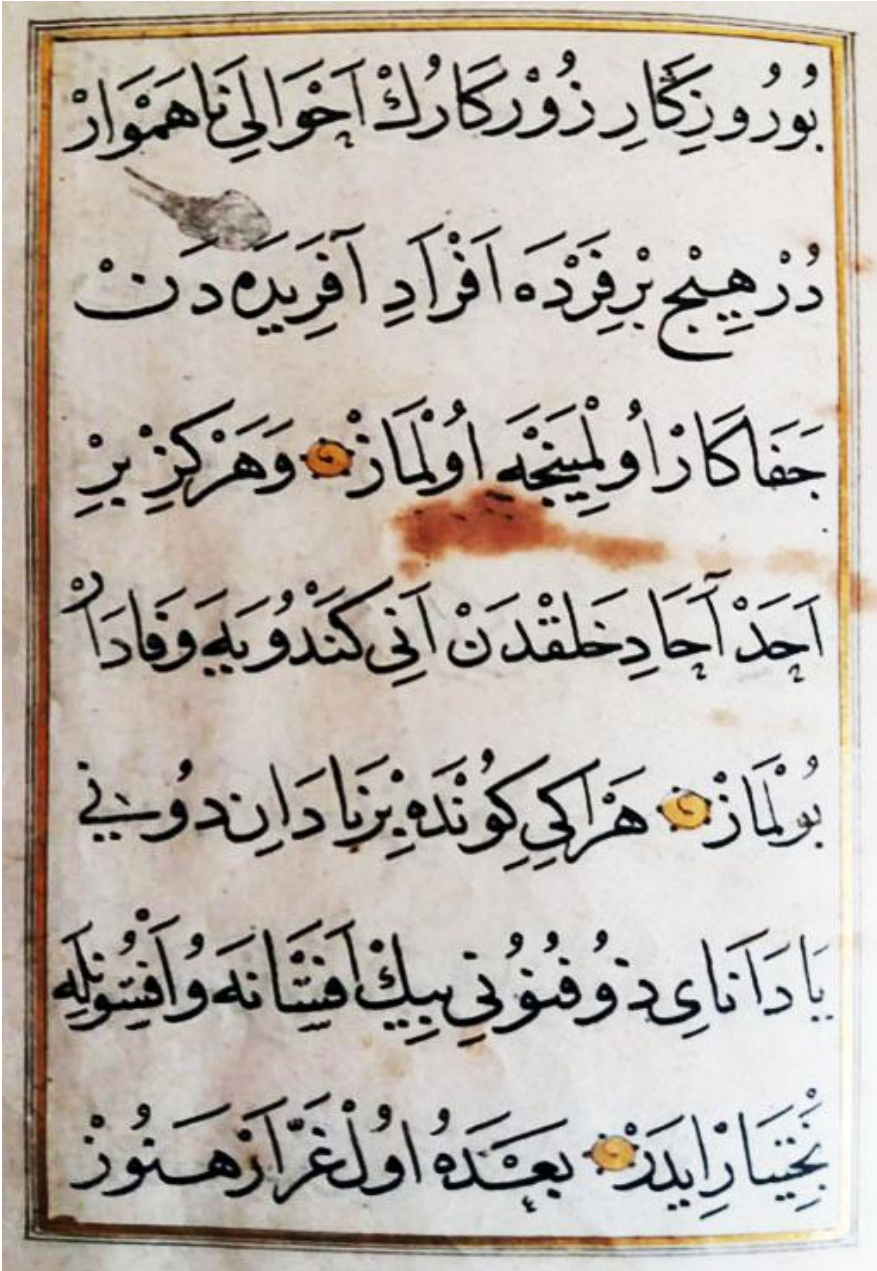 بُورُوزِكَارِ زُوْركَارُكْ اَحْوَالِي نَا هَمْوَارْ
دُرْ هِيْچ بِرْفَرْدَه اَفْرَادِ آفَرِيدَه دَنْ
جَفَاكَارْ اُولْمِينْجَه اُولْمَازْ وَهَرْكِزْ بِرْ
اَحَدْ آحَادِ خَلقْدَنْ اَنِي كَنْدُويَه وَفَادَارْ
بُولْمَازْ هَرْ اَكِي كُونْدَه بِرْنَادَانِ دُونِي
يَا دَانَاىِ ذُوفُنُونِي بِيكْ اَفْسَانَه وُاَفْسُونلَه
بَخْتِيَارْ اِيدَرْ بَعْدَهُ اُولْ غَرَّارْ هَنُوزْ